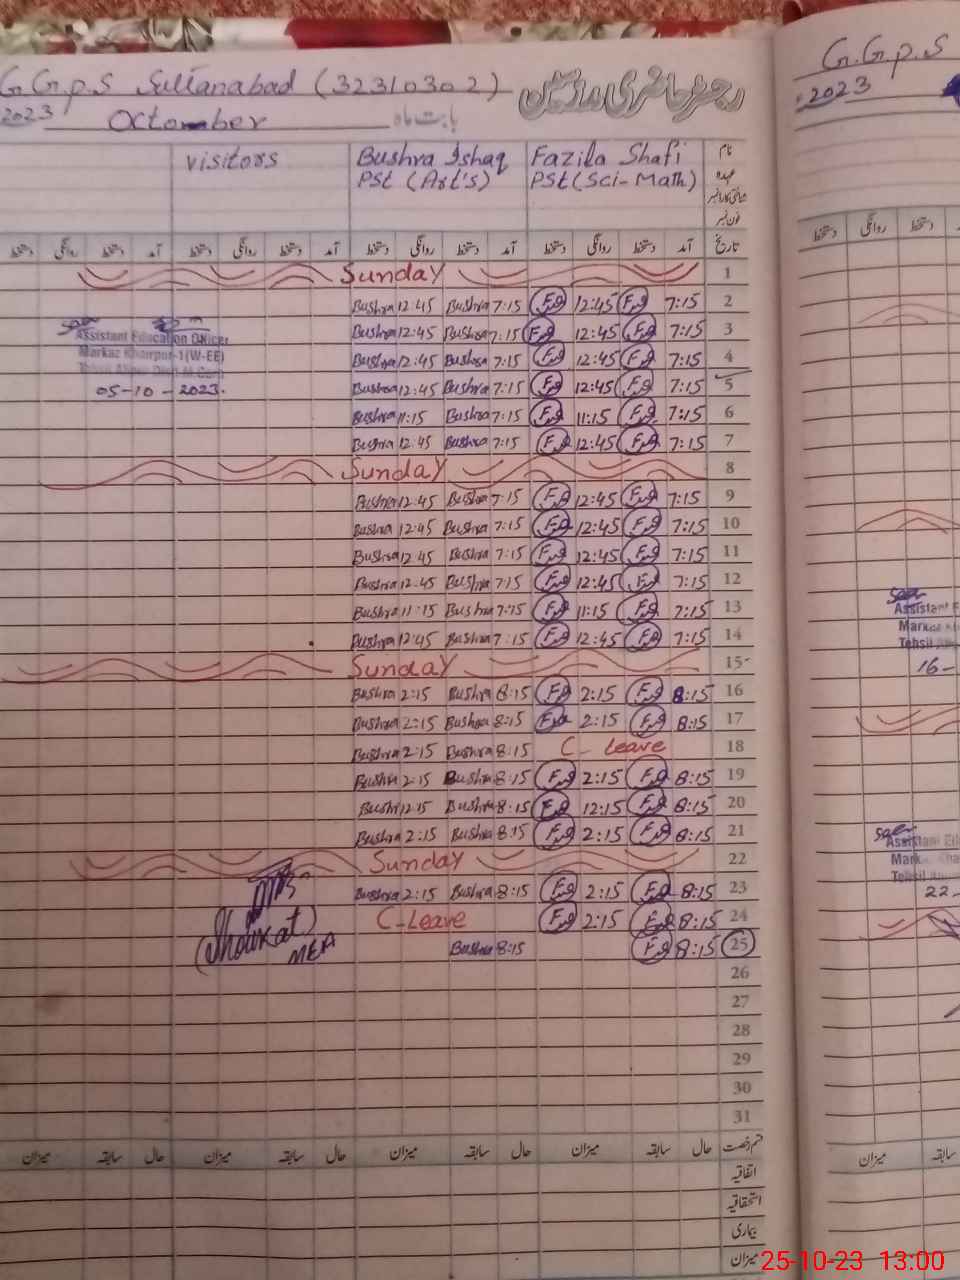 G.G.P.S Sultanabad (32310302) رجسٹر حاضری مدرسین
2023 Octomber بابت ماہ
visitors Bushra Ishaq Fazila Shafi نام
PSt (Art's) PSt (Sci-Math) عہدہ
فون نمبر
دستخط روانگی دستخط آمد دستخط روانگی دستخط آمد دستخط روانگی دستخط آمد دستخط روانگی دستخط آمد تاریخ
Sunday 1
Bushra 12:45 Bushra 7:15 12:45 7:15 2
Bushra 12:45 Bushra 7:15 12:45 7:15 3
Bushra 12:45 Bushra 7:15 12:45 7:15 4
Bushra 12:45 Bushra 7:15 12:45 7:15 5
Bushra 11:15 Bushra 7:15 11:15 7:15 6
Bushra 12:45 Bushra 7:15 12:45 7:15 7
Assistant Education Officer
Markaz Khairpur-1(W-EE)
05-10-2023.
Sunday 8
Bushra 12:45 Bushra 7:15 12:45 7:15 9
Bushra 12:45 Bushra 7:15 12:45 7:15 10
Bushra 12:45 Bushra 7:15 12:45 7:15 11
Bushra 12:45 Bushra 7:15 12:45 7:15 12
Bushra 11:15 Bushra 7:15 11:15 7:15 13
Bushra 12:45 Bushra 7:15 12:45 7:15 14
Sunday 15
Bushra 2:15 Bushra 8:15 2:15 8:15 16
Bushra 2:15 Bushra 8:15 2:15 8:15 17
Bushra 2:15 Bushra 8:15 C-Leave 18
Bushra 2:15 Bushra 8:15 2:15 8:15 19
Bushra 12:15 Bushra 8:15 12:15 8:15 20
Bushra 2:15 Bushra 8:15 2:15 8:15 21
Sunday 22
Bushra 2:15 Bushra 8:15 2:15 8:15 23
C-Leave 2:15 8:15 24
Bushra 8:15 8:15 25
(Showkat)
MEA
26
27
28
29
30
31
میزان سابقہ حال میزان سابقہ حال میزان سابقہ حال میزان سابقہ حال قسم رخصت
اتفاقیہ
استحقاقیہ
بیماری
میزان
G.G.P.S
2023
دستخط روانگی دستخط
Assistant
Tehsil
16-
22-
میزان سابقہ
25-10-23 13:00